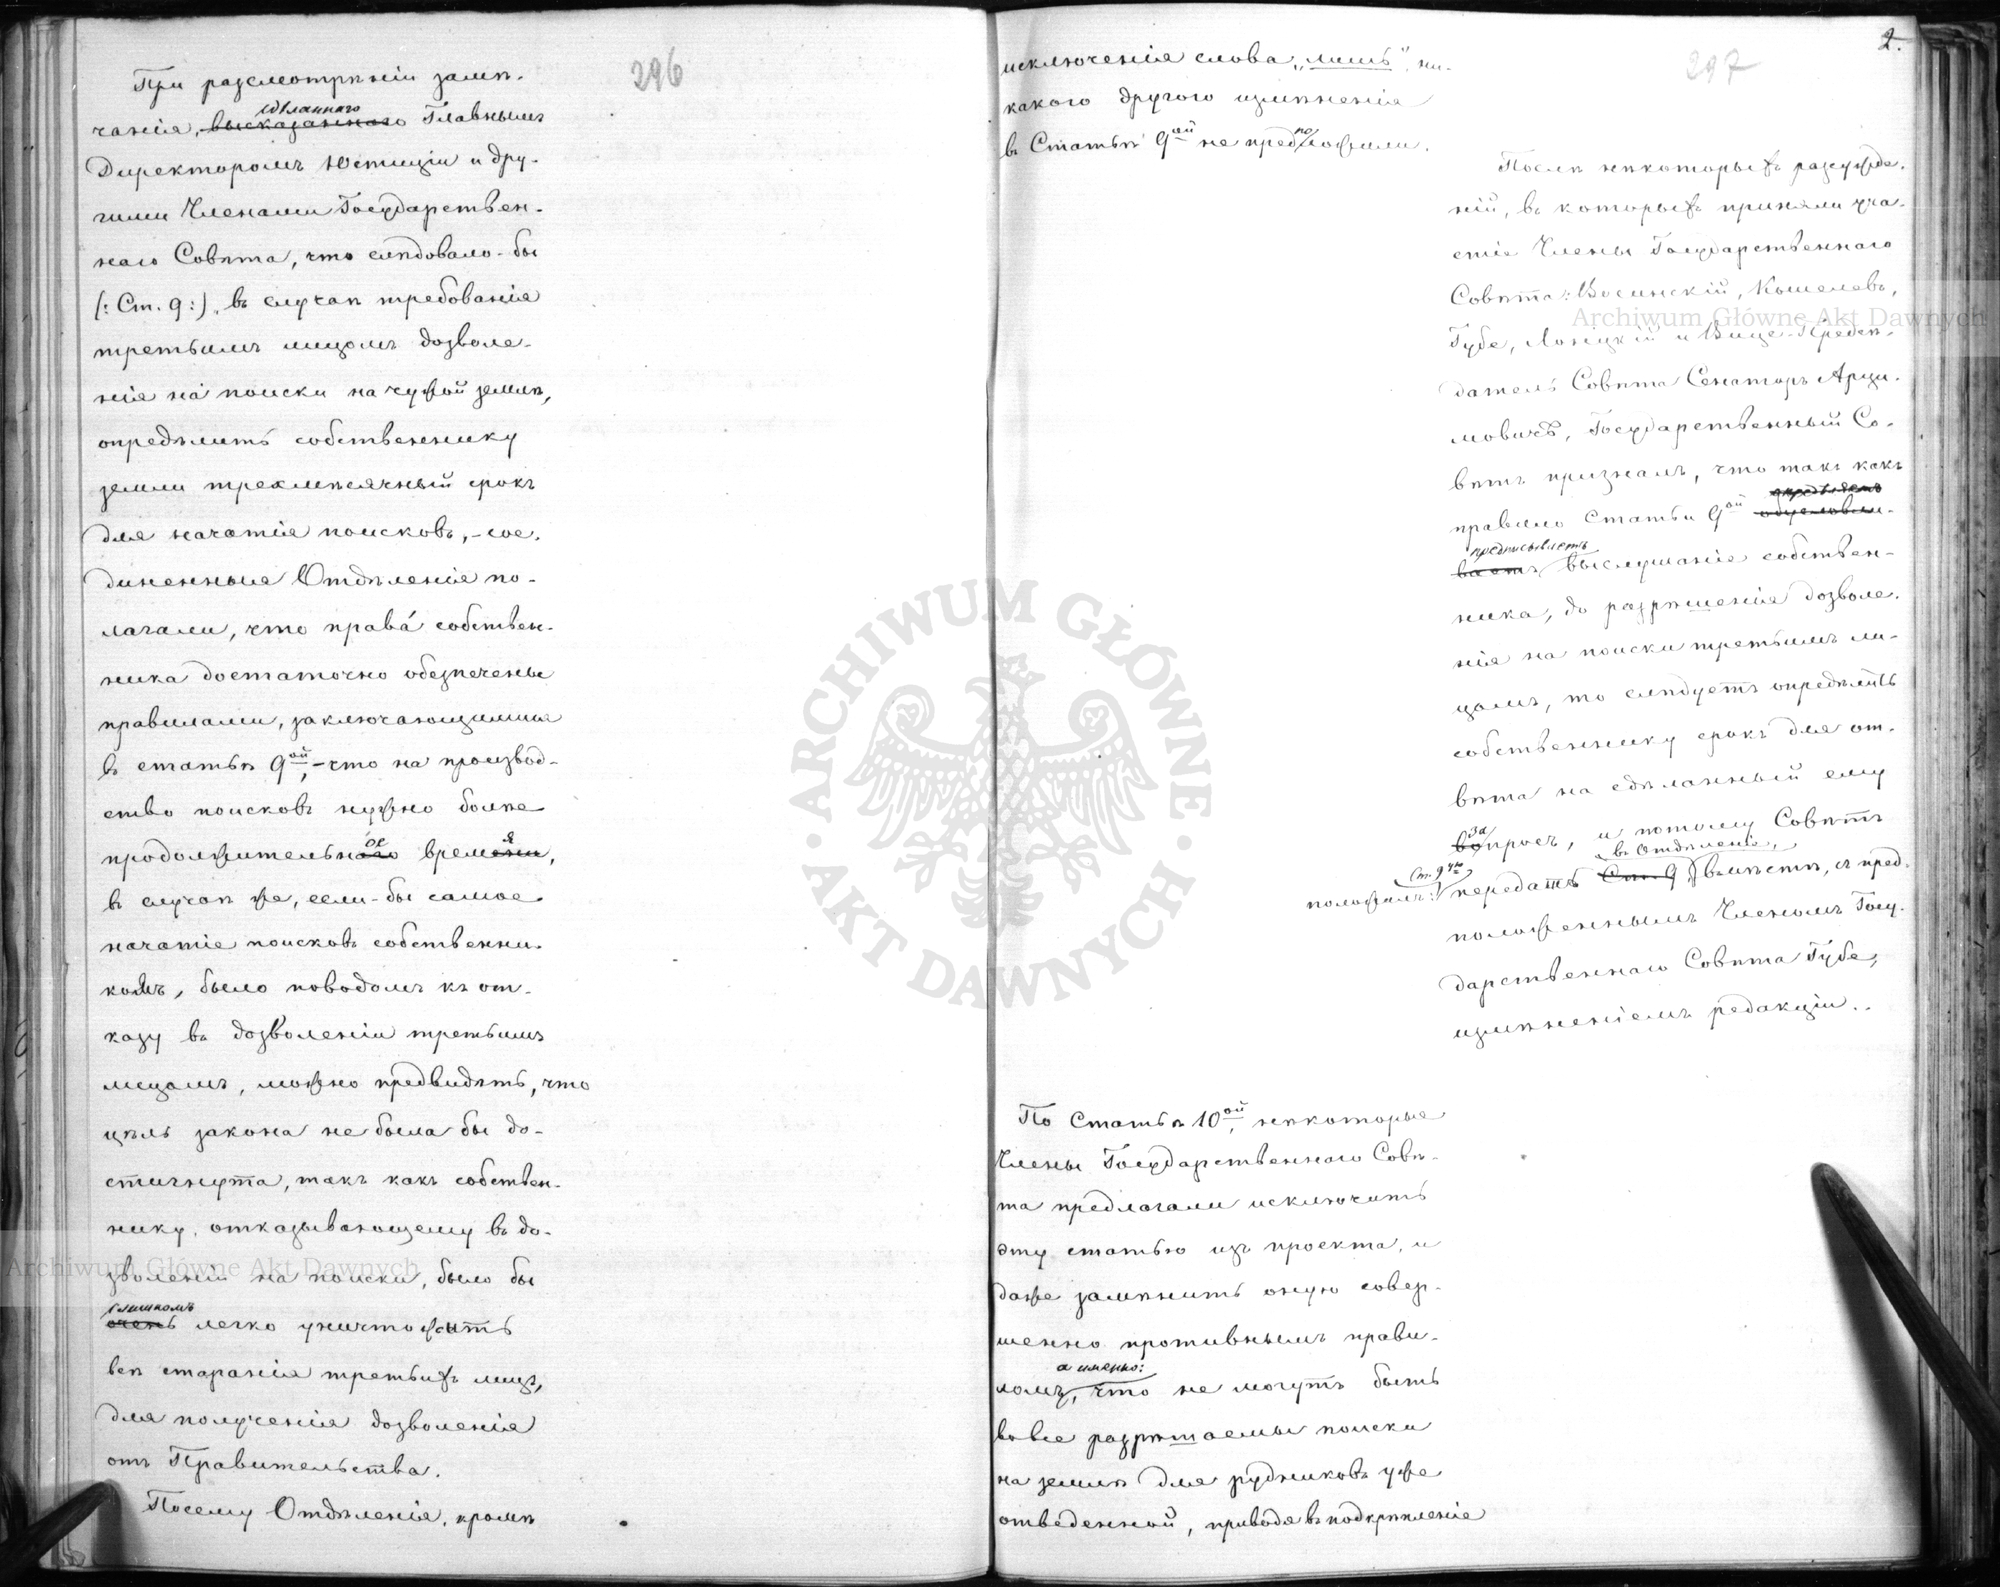 296
При разсмотрѣніи замѣ-
сдѣланнаго
чанія, высказаннаго Главнымъ
Директоромъ Юстиціи и дру-
гими Членами Государствен-
наго Совѣта, что слѣдовало-бы
(: Ст. 9 :), въ случаѣ требованія
третьимъ лицомъ дозволе-
нія на поиски на чужой землѣ,
опредѣлить собственнику
земли трехмѣсячный срокъ
для начатія поисковъ, - сое-
диненныя Отдѣленія по-
лагали, что права́ собствен-
ника достаточно обезпечены
правилами, заключающимися
въ статьѣ 9ой, - что на производ-
ство поисковъ нужно болѣе
ое я
продолжительнаго времени,
въ случаѣ же, если-бы самое
начатіе поисковъ собственни-
комъ, было поводомъ къ от-
казу въ дозволеніи третьимъ
лицамъ, можно предвидѣть, что
цѣль закона не была бы до-
стигнута, такъ какъ собствен-
нику, отказывающему въ до-
зволеніи на поиски, было бы
слишкомъ
очень легко уничтожить
всѣ старанія третьихъ лицъ,
для полученія дозволенія
отъ Правительства.
Посему Отдѣленія, кромѣ
2.
297
исключенія слова „лишь“, ни-
какого другого измѣненія
по
въ Статьѣ 9ой не предложили.
Послѣ нѣкоторыхъ разсужде-
ній, въ которыхъ приняли уча-
стіе Члены Государственнаго
Совѣта: Восинскій, Кошелевъ,
Губе, Лоницкій и Вице-Предсѣ-
датель Совѣта Сенаторъ Арци-
мовичъ, Государственный Со-
вѣтъ призналъ, что такъ какъ
опредѣляетъ
правило Статьи 9ой обусловли-
предписываетъ
ваетъ выслушаніе собствен-
ника, до разрѣшенія дозволе-
нія на поиски третьимъ ли-
цамъ, то слѣдуетъ опредѣлить
собственнику срокъ для от-
вѣта на сдѣланный ему
за
вопросъ, и потому Совѣтъ
въ Отдѣленіе,
Ст. 9ую
положилъ: передать Ст. 9 вмѣстѣ, съ пред-
положеннымъ Членомъ Госу-
дарственнаго Совѣта Губе,
измѣненіемъ редакціи..
По Статьѣ 10ой, нѣкоторые
Члены Государственнаго Совѣ-
та предлагали исключить
эту статью изъ проекта, и
даже замѣнить оную совер-
шенно противнымъ прави-
а именно:
ломъ, что не могутъ быть
вовсе разрѣшаемы поиски
на землѣ для рудниковъ уже
отведенной, приводя въ подкрѣпленіе
Archiwum Główne Akt Dawnych
Archiwum Główne Akt Dawnych
ARCHIWUM GŁÓWNE
AKT DAWNYCH